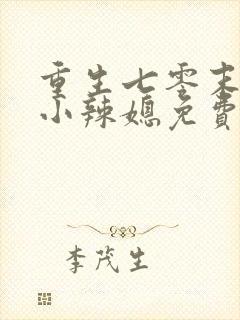 重生七零末
小辣媳免費
李茂生